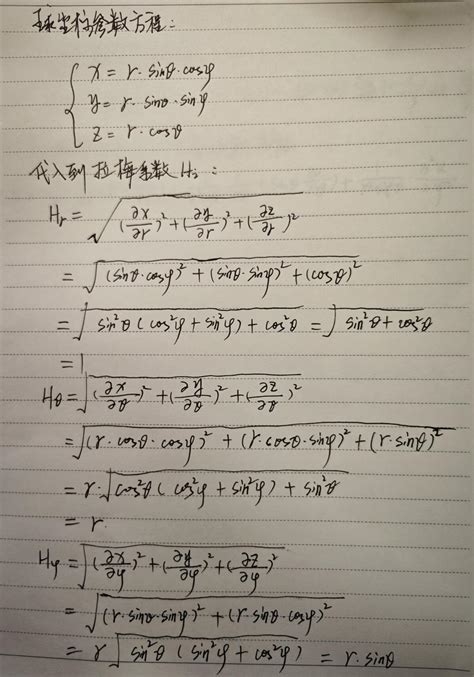 球坐标参数方程:
x = r · sinθ · cosφ
y = r · sinθ · sinφ
z = r · cosθ
代入到拉梅系数 Hᵢ :
Hᵣ = √((∂x/∂r)² + (∂y/∂r)² + (∂z/∂r)²)
= √((sinθ · cosφ)² + (sinθ · sinφ)² + (cosθ)²)
= √(sin²θ (cos²φ + sin²φ) + cos²θ) = √(sin²θ + cos²θ)
= 1
Hθ = √((∂x/∂θ)² + (∂y/∂θ)² + (∂z/∂θ)²)
= √((r · cosθ · cosφ)² + (r · cosθ · sinφ)² + (r · sinθ)²)
= r · √(cos²θ (cos²φ + sin²φ) + sin²θ)
= r
Hφ = √((∂x/∂φ)² + (∂y/∂φ)² + (∂z/∂φ)²)
= √((r · sinθ · sinφ)² + (r · sinθ · cosφ)²)
= r √(sin²θ (sin²φ + cos²φ)) = r · sinθ